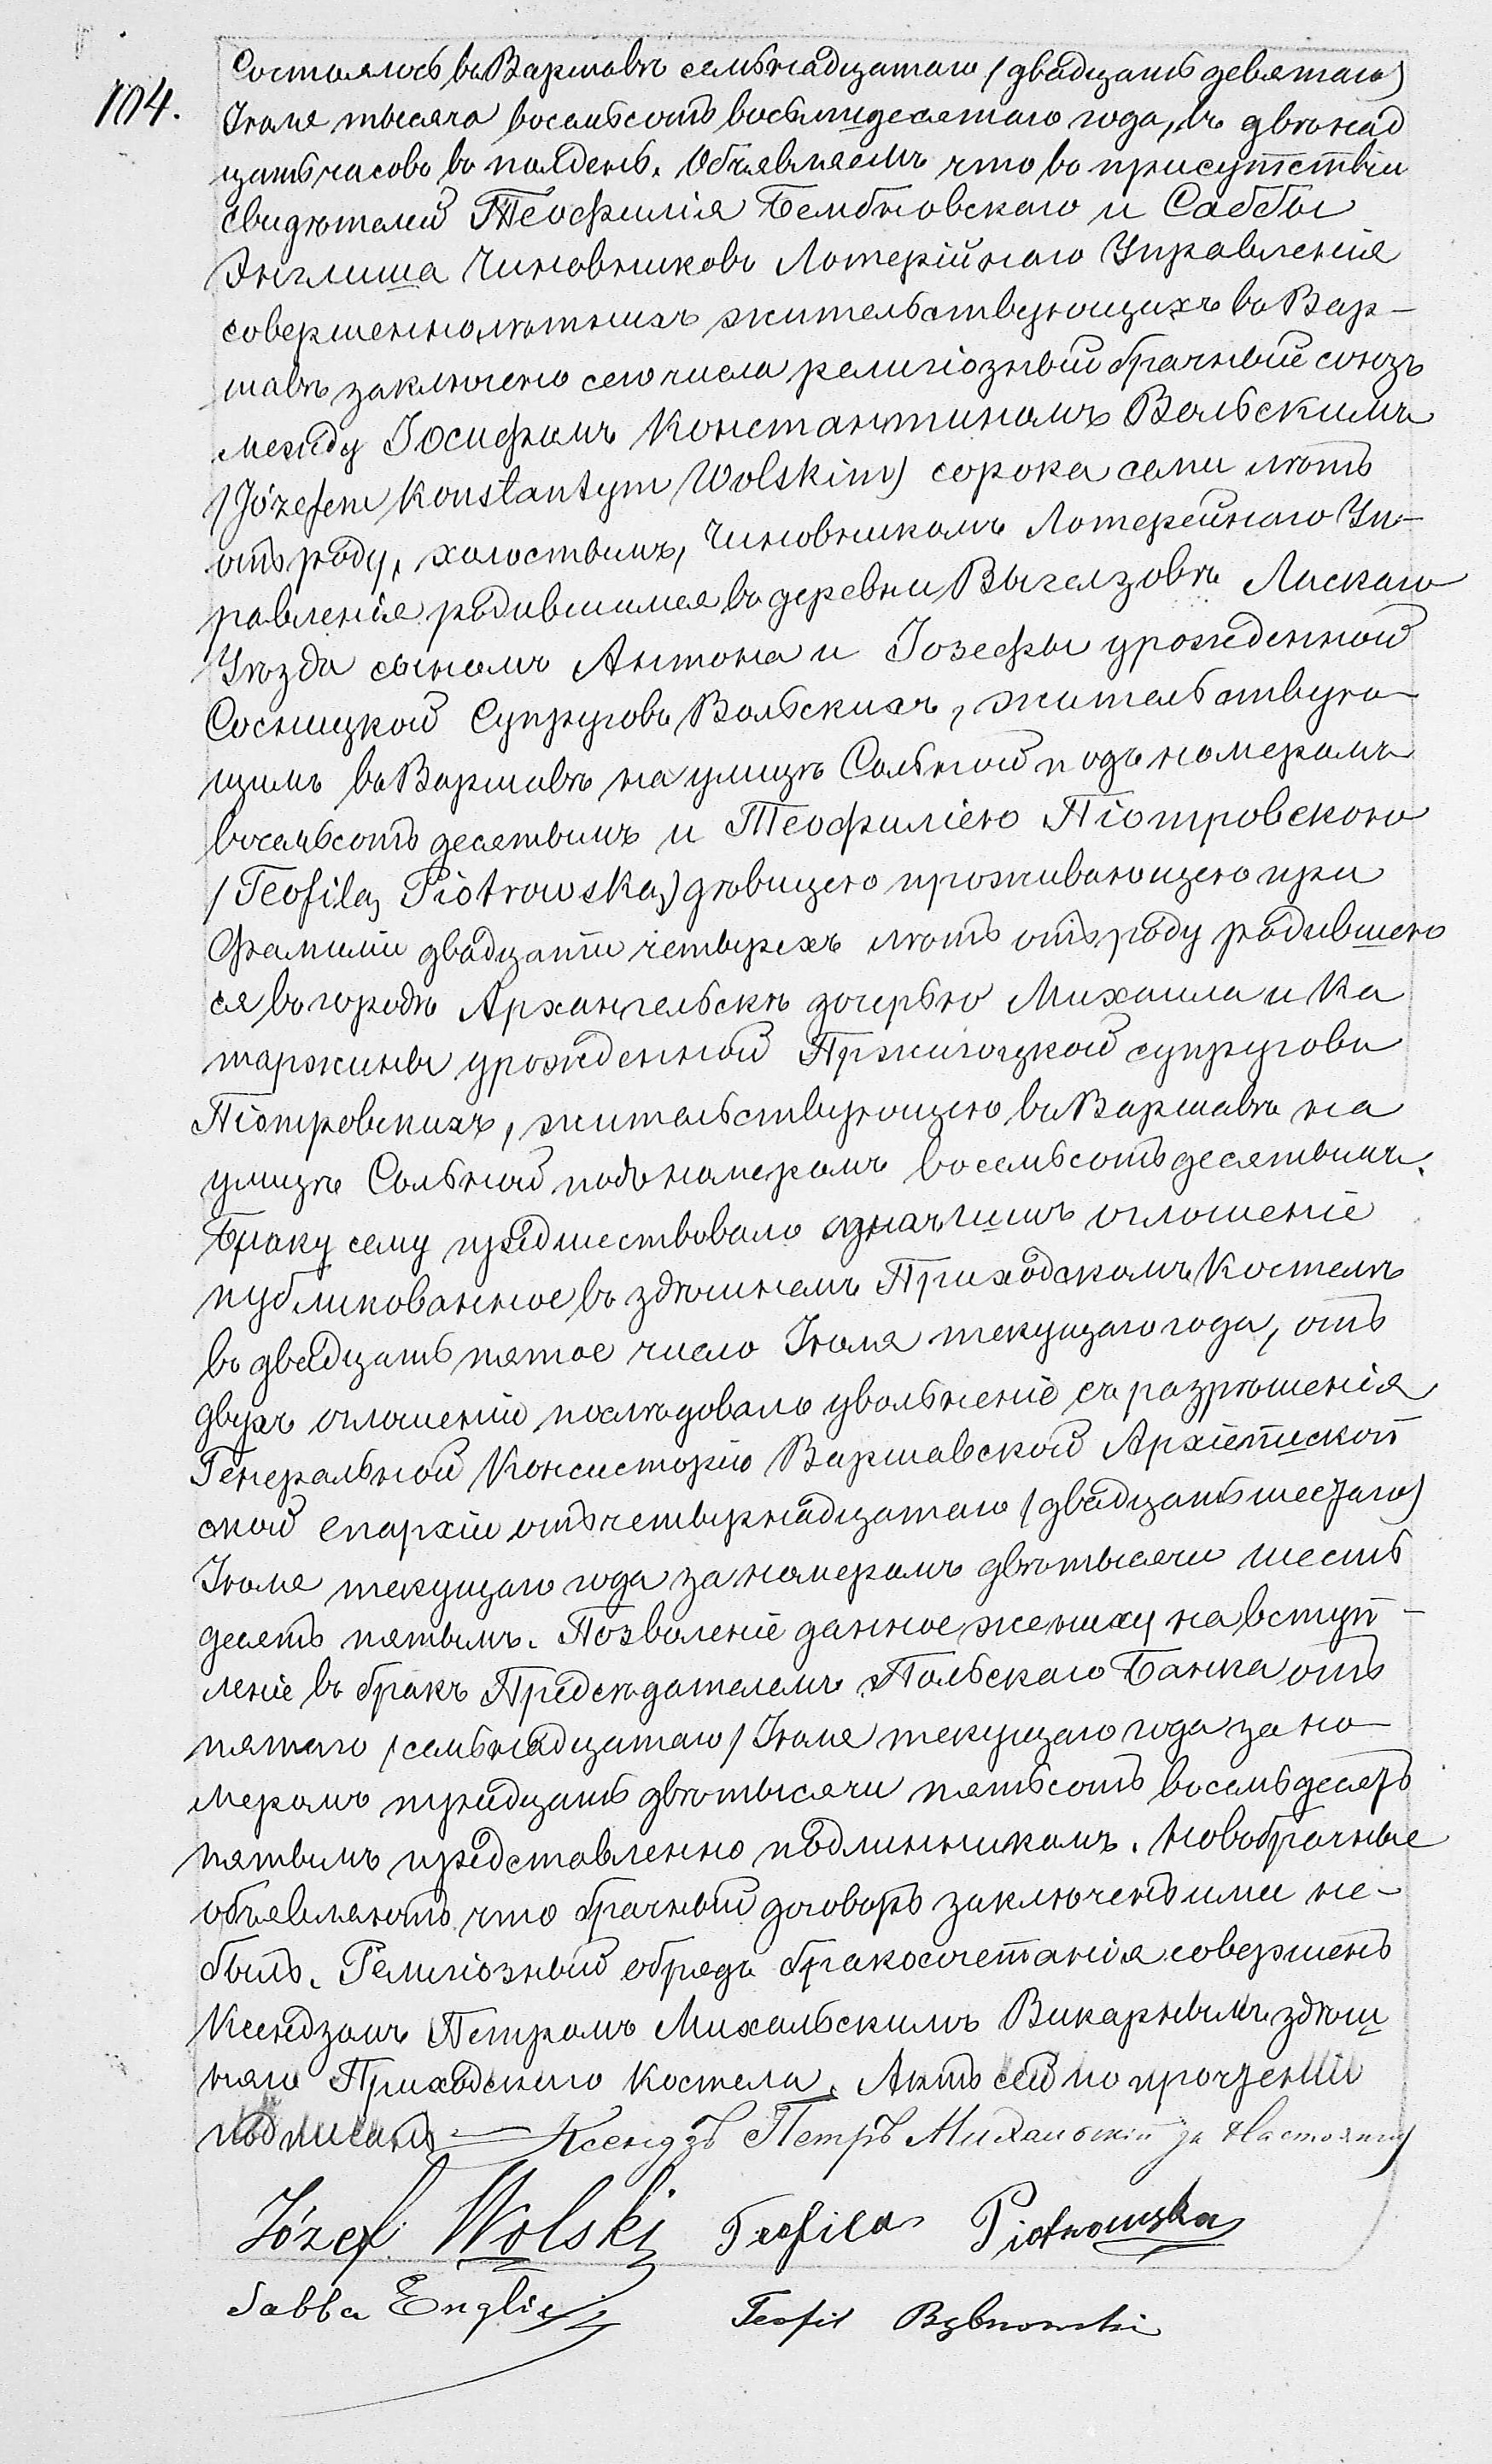 104.
Состоялось въ Варшавѣ семьнадцатаго (двадцать девятаго)
Іюля тысяча восемьсотъ восьмидесятаго года, въ двѣнад
цать часовъ въ полдень. Объявляемъ что въ присутствіи
свидѣтелей Теофилія Бембновскаго и Саббы
Энглиша Чиновниковъ Лотерійнаго Управленія
совершеннолѣтнихъ жительствующихъ въ Вар-
шавѣ заключено сего числа религіозный брачный союзъ
между Іосифомъ Константиномъ Вольскимъ
(Józefem Konstantym Wolskim) сорока семи лѣтъ
отъ роду, холостымъ, Чиновникомъ Лотерейнаго Уп-
равленія родившимся въ деревни Выгелзовѣ Ласкаго
Уѣзда сыномъ Антона и Іозефы урожденной
Сосницкой Супруговъ Вольскихъ, жительствую-
щимъ въ Варшавѣ на улицѣ Сольной подъ номеромъ
восемьсотъ десятымъ и Теофиліею Піотровскою
(Teofilą Piotrowską) дѣвицею проживающею при
Фамиліи двадцати четырехъ лѣтъ отъ роду родившею
ся въ городѣ Архангельскѣ дочерью Михаила и Ка
таржины урожденной Пржигодзкой супруговъ
Піотровскихъ, жительствующею въ Варшавѣ на
улицѣ Сольной подъ номеромъ восемьсотъ десятымъ.
Браку сему предшествовало оглошеніе
публикованное въ здѣшнемъ Приходскомъ Костелѣ
въ двадцать пятое число Іюля текущаго года, отъ
двухъ оглошеній послѣдовало увольненіе съ разрѣшенія
Генеральной Консисторіи Варшавской Архіепископ
ской епархіи отъ четырнадцатаго (двадцать шестаго)
Іюля текущаго года за номеромъ двѣ тысячи шесть
десятъ пятымъ. Позволеніе данное жениху на вступ-
леніе въ бракъ Предсѣдателемъ Польскаго Банка отъ
пятаго (семьнадцатаго) Іюля текущаго года за но-
меромъ тридцать двѣ тысячи пятьсотъ восемьдесятъ
пятымъ представленно подлинникомъ. Новобрачные
объявляютъ что брачный договоръ заключенъ ими не-
былъ. Религіозный обрядъ бракосочетанія совершенъ
Ксендзомъ Петромъ Михальскимъ Викарнымъ здѣш
няго Приходскаго Костела. Актъ сей по прочтеніи
подписанъ = Ксендзъ Петръ Михальскій за Настоящ
Józef Wolski Teofila Piotrowska
Sabba Englisz Teofil Bębnowski